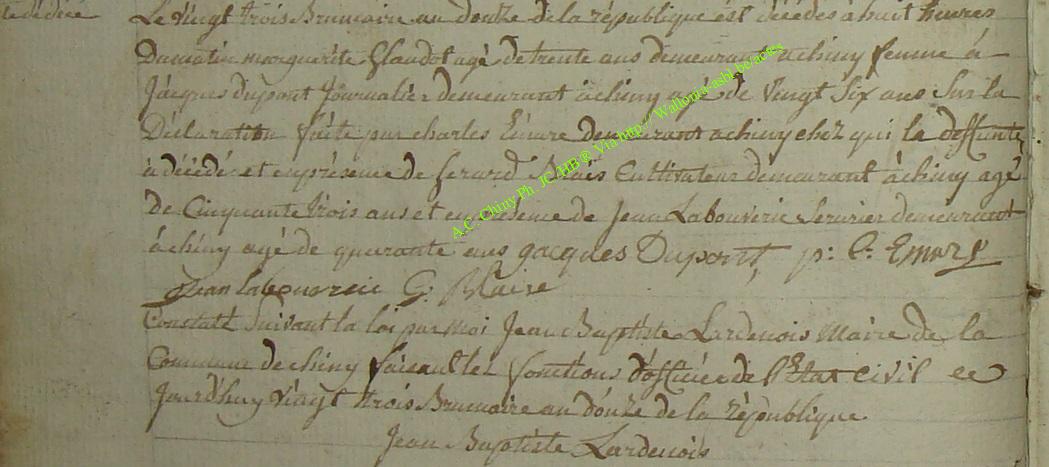 de décée
Le vingt trois Brumaire an douze de la république est décédes à huit heures
Dumatin marguerite Glaudot agé de trente ans demeurant achiny femme à
Jacques dupont Journalier demeurant àchiny agé de vingt six ans Sur la
Déclaration faite par charles Emere demeurant achiny chez qui la deffunte
à décédé et en présence de Gerard Blais Cultivateur demeurant àchiny agé
de Cinquante trois ans et en présence de Jean Labouverie Serurier demeurant
àchiny agé de quarante ans Jacques Dupont, p: C: Emery
Jean labouverie G: Blaise
Constaté Suivant la loi par moi Jean Baptiste Lardenois Maire de la
Commune de chiny faisant les fonctions d'officier de l'Etat Civil ce
Jourdhuy vingt trois Brumaire an douze de la république
Jean Baptiste Lardenois
A.C. Chiny Ph. JC HB ® Via http:// Wallonia-asbl.be/actes